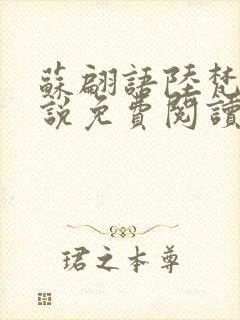 蘇翩語陸梵
說免費閱讀
珺之本尊